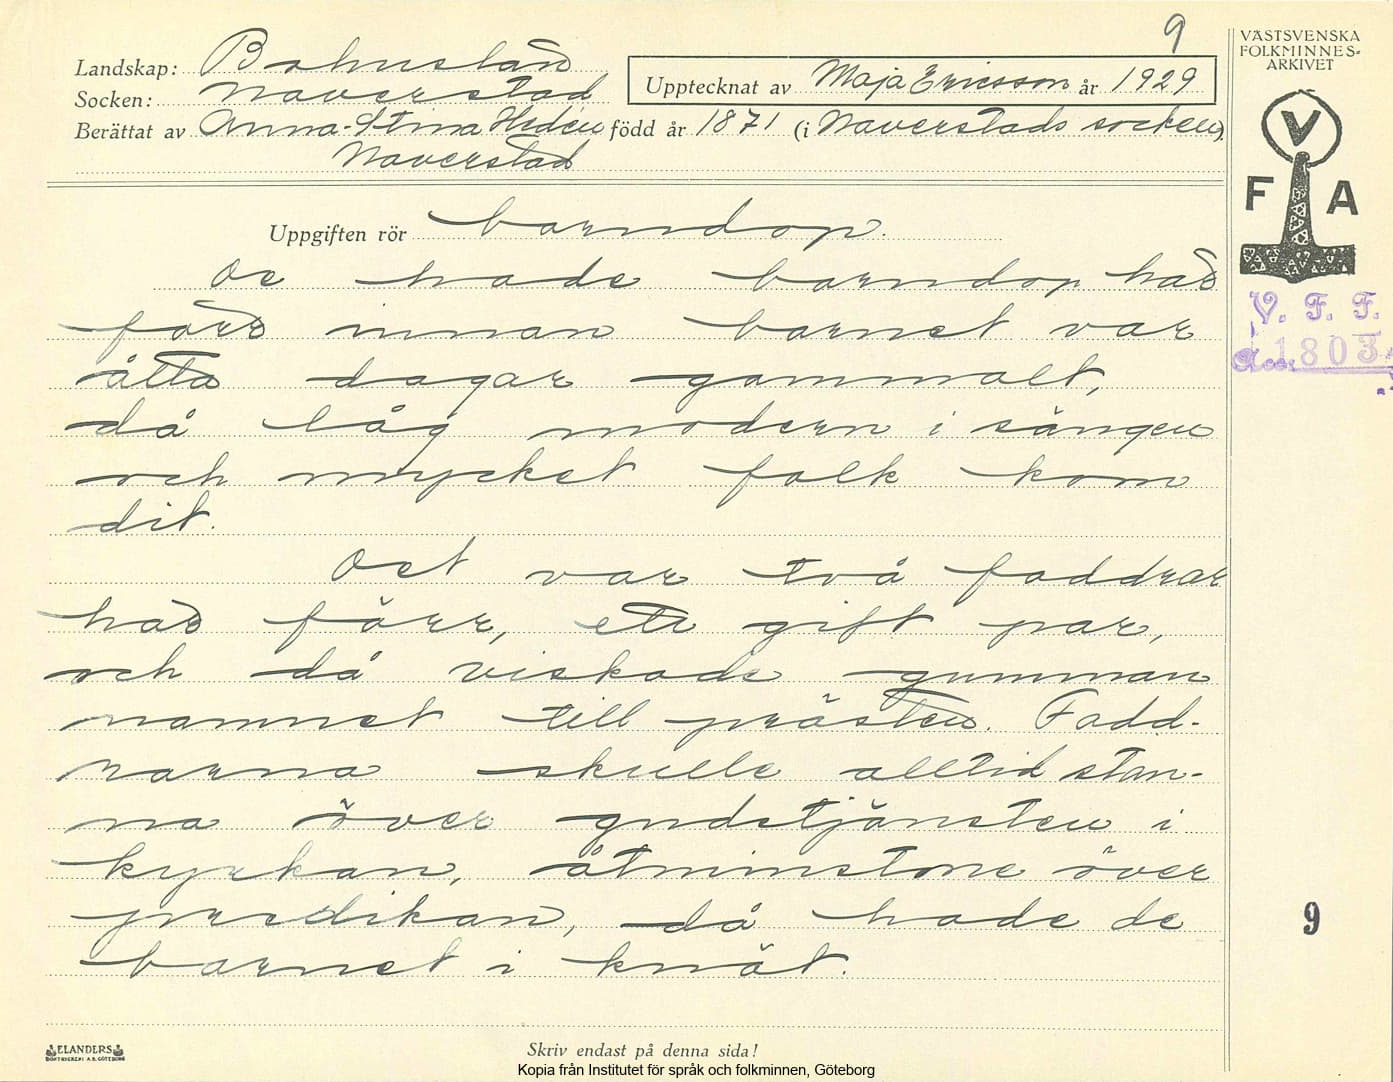 9
VÄSTSVENSKA
FOLKMINNES-
ARKIVET
Landskap: Bohuslän
Upptecknat av Maja Ericsson år 1929
Socken: Naverstad
Berättat av Anna-Stina Hedén född år 1871 (i Naverstads socken)
Naverstad
V
F A
Uppgiften rör barndop.
V. F. F.
Acc. 1803
De hade barndop här
förr innan barnet var
åtta dagar gammalt,
då låg modern i sängen
och mycket folk kom
dit.
Det var två faddrar
här förr, ett gift par,
och då viskade gumman
namnet till prästen. Fadd-
rarna skulle alltid stan-
na över gudstjänsten i
kyrkan, åtminstone över
predikan, då hade de
barnet i knät.
9
ELANDERS
BOKTRYCKERI A.B. GÖTEBORG
Skriv endast på denna sida!
Kopia från Institutet för språk och folkminnen, Göteborg